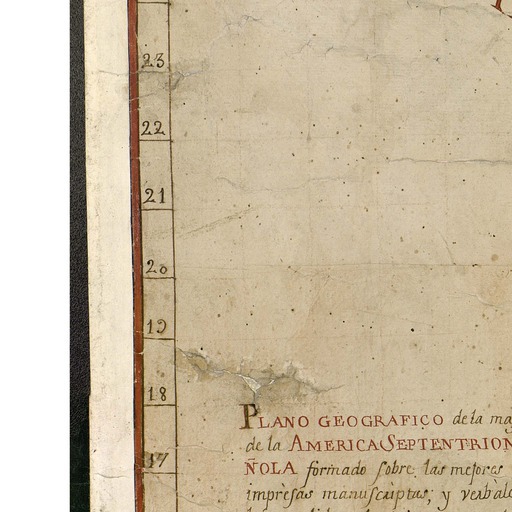 23
22
21
20
19
18
17
PLANO GEOGRAFICO de la
de la AMERICA SEPTENTRION
ÑOLA formado sobre las mejores
impresas manuscriptas; y